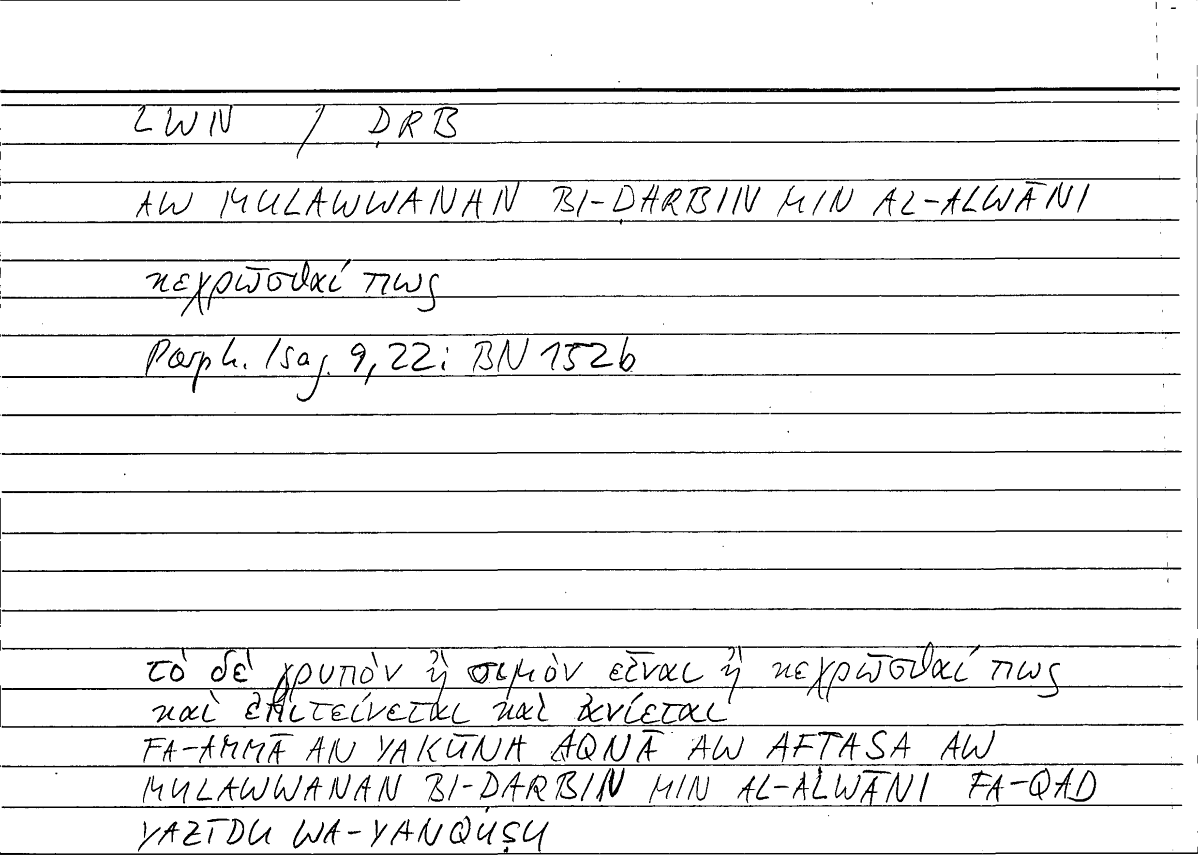 LWN / ḌRB
AW MULAWWANAN BI-ḌARBIN MIN AL-ALWĀNI
κεχρῶσθαί πως
Porph. Isag. 9,22: BN 152b
τὸ δὲ γρυπὸν ἢ σιμὸν εἶναι ἢ κεχρῶσθαί πως
καὶ ἐπιτείνεται καὶ ἀνίεται
FA-AMMĀ AN YAKŪNA AQNĀ AW AFTASA AW
MULAWWANAN BI-ḌARBIN MIN AL-ALWĀNI FA-QAD
YAZĪDU WA-YANQUṢU